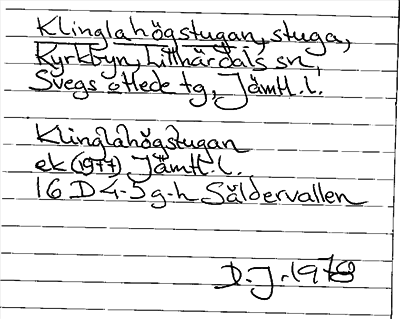 Klinglahögstugan, stuga,
Kyrkbyn, Lillhärdals sn,
Svegs ottede tg, Jämtl. l.
Klinglahögstugan
ek (1977) Jämtl. l.
16 D 4-5 g-h Säldervallen
D. J. 1978